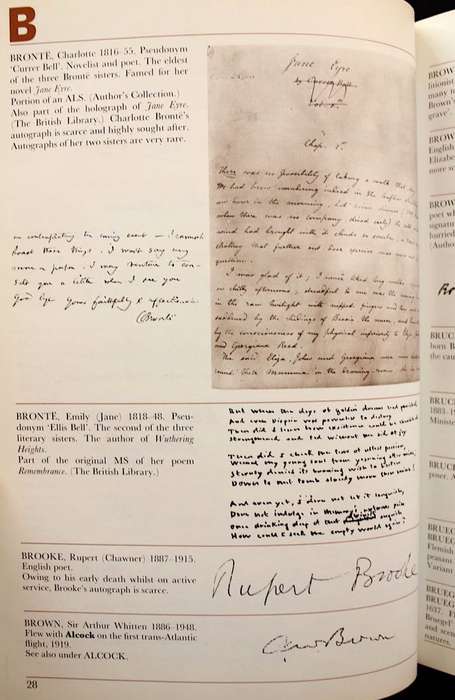 B
BRONTË, Charlotte 1816–55. Pseudonym
'Currer Bell'. Novelist and poet. The eldest
of the three Brontë sisters. Famed for her
novel Jane Eyre.
Portion of an ALS. (Author's Collection.)
Also part of the holograph of Jane Eyre.
(The British Library.) Charlotte Brontë's
autograph is scarce and highly sought after.
Autographs of her two sisters are very rare.
Jane Eyre
by Currer Bell
Chap. 1st
There was no possibility of taking a walk that day.
We had been wandering indeed in the leafless
an hour in the morning, but since
when there was no company, dined early) the cold
wind had brought with it clouds so sombre, a rain
question.
I was glad of it; I never liked long walks
on chilly afternoons; dreadful to me was the coming
in the raw twilight with nipped fingers and
saddened by the chidings of Bessie the nurse, and
by the consciousness of my physical inferiority to Eliza
and Georgiana Reed.
The said Eliza, John and Georgiana were now
round their Mamma in the drawing-room
I cannot
those things. I won't say any
more
you a little when I see you
Good bye Yours faithfully & affectionately
CBrontë
BRONTË, Emily (Jane) 1818–48. Pseu-
donym 'Ellis Bell'. The second of the three
literary sisters. The author of Wuthering
Heights.
Part of the original MS of her poem
Remembrance. (The British Library.)
But when the days of golden dreams had perished
And even Despair was powerless to destroy
Then did I learn how existence could be cherished
Strengthened and fed without the aid of joy
Then did I check the tears of useless passion,
Weaned my young soul from yearning after thine;
Sternly denied its burning wish to hasten
Down to that tomb already more than mine!
And even yet, I dare not let it languish,
Dare not indulge in Memory's rapturous pain
Once drinking deep of that divinest anguish
How could I seek the empty world again?
BROOKE, Rupert (Chawner) 1887–1915.
English poet.
Owing to his early death whilst on active
service, Brooke's autograph is scarce.
Rupert Brooke
BROWN, Sir Arthur Whitten 1886–1948.
Flew with Alcock on the first trans-Atlantic
flight, 1919.
See also under ALCOCK.
Brown
28
BROW
litionist
many n
Brown's
grave'.
BROW
English
Elizabe
more sc
BROW
poet wh
signatur
hurried
'Author
BRUC
born B
the cau
BRUC
1883–1
Ministe
BRUC
poser. A
BRUEG
BRUEG
Flemish
peasant
Variant
BRUEG
BRUEG
1637. Fl
Brueghel'
and scene
natures.